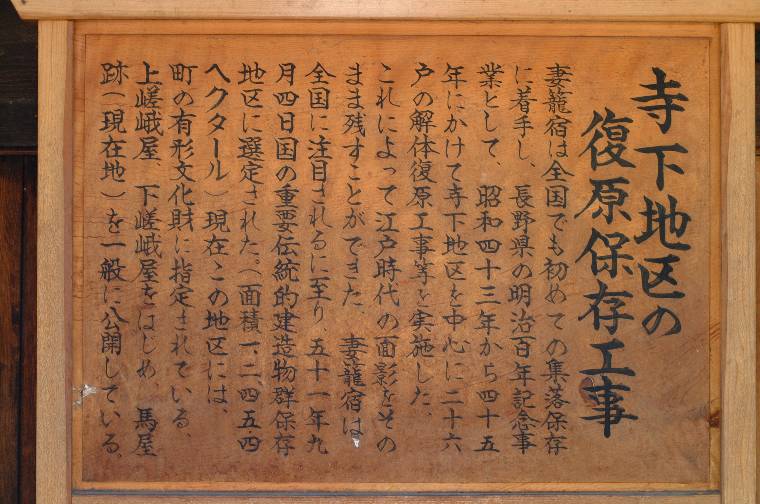 寺下地区の
復原保存工事
妻籠宿は全国でも初めての集落保存
に着手し、長野県の明治百年記念事
業として、昭和四十三年から四十五
年にかけて寺下地区を中心に二十六
戸の解体復原工事等を実施した、
これによって江戸時代の面影をその
まま残すことができた 妻籠宿は
全国に注目されるに至り、五十一年九
月四日国の重要伝統的建造物群保存
地区に選定された。(面積一、二四五・四
ヘクタール)現在この地区には、
町の有形文化財に指定されている、
上嵯峨屋、下嵯峨屋をはじめ、馬屋
跡(現在地)を一般に公開している、